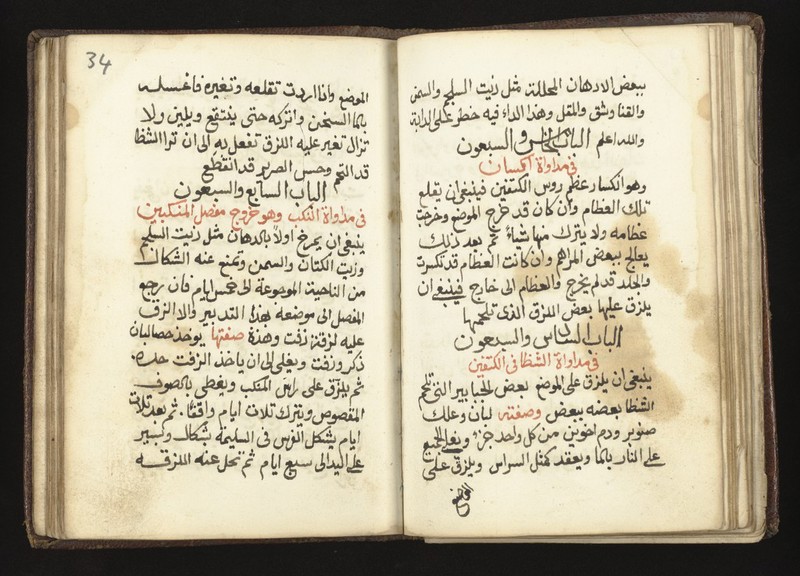 ببعض الادهان المحللة مثل زيت السلجم والسمن
والقنا وشق والمقل وهذا الداء فيه خطر على الدابة
والله اعلم الباب الخامس والسبعون
في مداواة انكسار
وهو انكسار عظم روس الكتفين فينبغي ان يقلع
تلك العظام وان كان قد خرج الموضع وخرجت
عظامه ولا يترك منها شيا ثم بعد ذلك
يعالج ببعض المراهم وان كانت العظام قد تكسرت
والجلد قد لم يخرج والعظام الى خارج فينبغي ان
يلزق عليها بعض اللزق الذي تلحمها
الباب السادس والسبعون
في مداواة الشظا في الكتفين
ينبغي ان يلزق على الموضع بعض الجبابير التي تلحم
الشظا بعضه ببعض وصفته لبان وعلك
صنوبر ودم اخوين من كل واحد جزء ويغلي الجميع
على النار بالماء ويعقد كمثل السراس ويلزق على
الموضع
34
الموضع واذا اردت تقلعه وتغيره فاغسله
بالماء السخن واتركه حتى ينتقع ويلين ولا
تزال تغير عليه اللزق تفعل به الى ان ترا الشظا
قد التحم وحس الصرير قد انقطع
الباب السابع والسبعون
في مداواة النكب وهو خروج مفصل المنكبين
ينبغي ان يمرخ اولا بالدهان مثل زيت السلجم
وزيت الكتان والسمن وتمنع عنه الشكال
من الناحية الموجوعة الى خمس ايام فان رجع
المفصل الى موضعه بهذا التدبير والا الزق
عليه لزقة زفت وهذه صفتها يوخذ حصالبان
ذكر وزفت ويغلي الى ان ياخذ الزفت حده
ثم يلزق على راس المنكب ويغطى بالصوف
المقصوص ويترك ثلاث ايام واقفا ثم بعد ثلاث
ايام يشكل الفرس في السليمة بشكال وكبير
على اليد الى سبع ايام ثم تحل عنه اللزقه